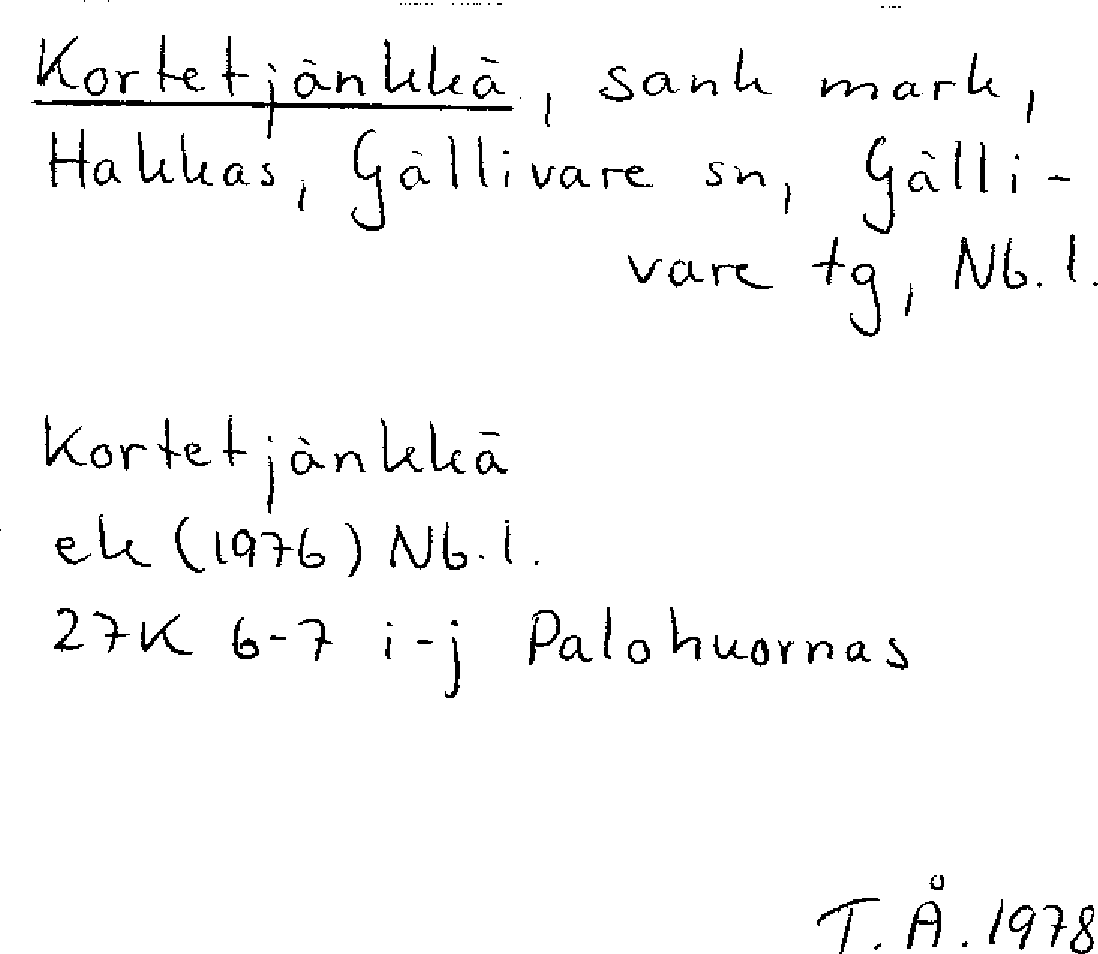 Kortetjänkkä, sank mark,
Hakkas, Gällivare sn, Gälli-
vare tg, Nb. l.
Kortetjänkkä
ek (1976) Nb. l.
27K 6-7 i-j Palohuornas
T. Å. 1978